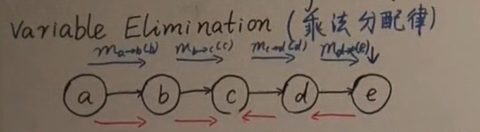 Variable Elimination (乘法分配律)
m a→b(b) m b→c(c) m c→d(d) m d→e(e)
a b c d e